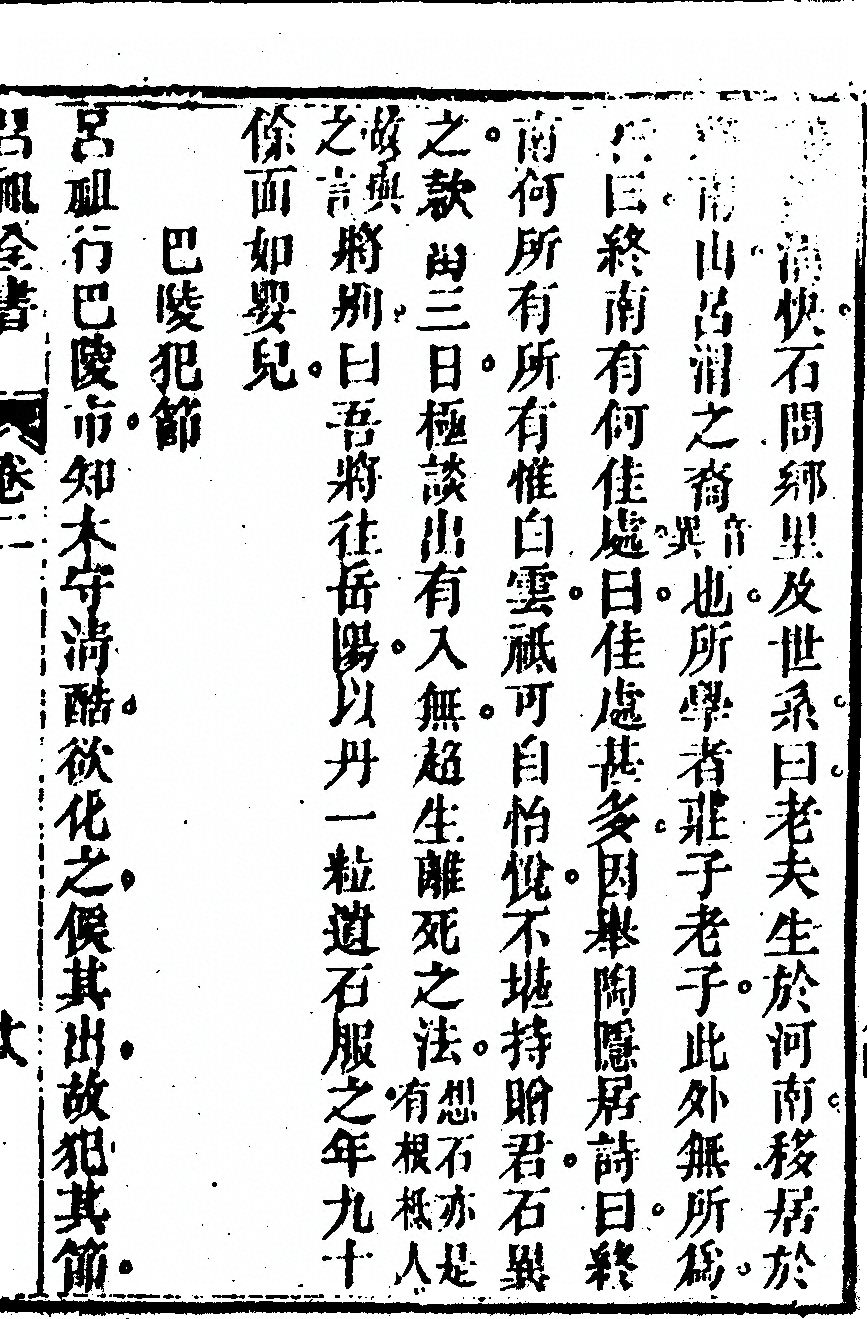 清快石問鄉里及世系曰老夫生於河南移居於
終南山呂渭之裔音異也所學者莊子老子此外無所爲
曰終南有何佳處曰佳處甚多因舉陶隱居詩曰終
南何所有所有惟白雲祗可自怡悅不堪持贈君石異
之款留三日極談出有入無超生離死之法想石亦是有根柢人
故與之言將別曰吾將往岳陽以丹一粒遺石服之年九十
餘面如嬰兒
巴陵犯節
呂祖行巴陵市知太守淸酷欲化之俟其出故犯其節
呂祖全書 卷二